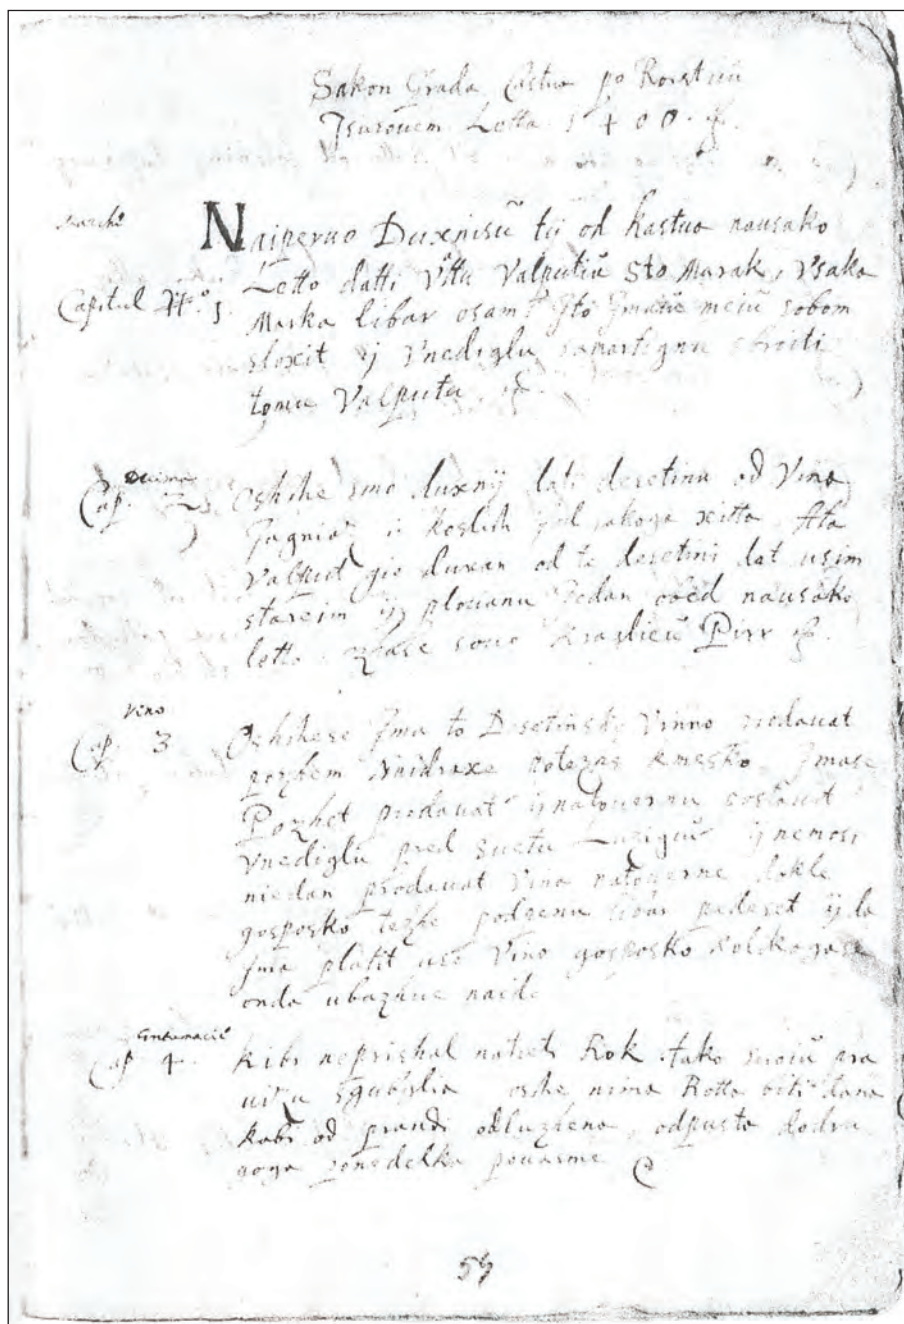 Sakon Grada Castua po Koratiū
Jsurouem Letta 1400.
Marche
Naiperuo Duxnisū tÿ od Kastua nausako
Capitul 1.
Letto datti Vttu Valputiū Sto Marak, Vsaka
Marka libar osam Jto Jmaiū meiū sobom
sloxit ÿ Vnediglu samartignu sbroiti
tomu Valputu
Decima
Cap. 2.
Oshche smo duxnÿ dati desetinu od Vina
Jagniaz i Koslich Jod sakoga xitta. Ata
Valput gie duxan od te desetini dat usim
stareim ÿ plouanu Jedan obed nausako
letto. Pirr
Vino
Cap. 3
Oshchese Jma to Desetinsko Vinno prodauat
Naidraxe Jmase
Pozhet prodauat ÿ natouernu postauit
Vnediglu pred Suetu Luzigiū ÿ nemosi
niedan prodauat Vina natouerne dokle
gosposko tezhe libar pedeset ÿ da
Jma platit uso Vino gosposko
onda ubazhue naide
Contumacie
Cap 4.
Kibi neprishal natreti Rok tako suoiū pra
uizu sgubglia oshe nima Rotta biti dana
Kabi od praudi odluzhena, odpusta dodru
goga ponedelka pouasme
59